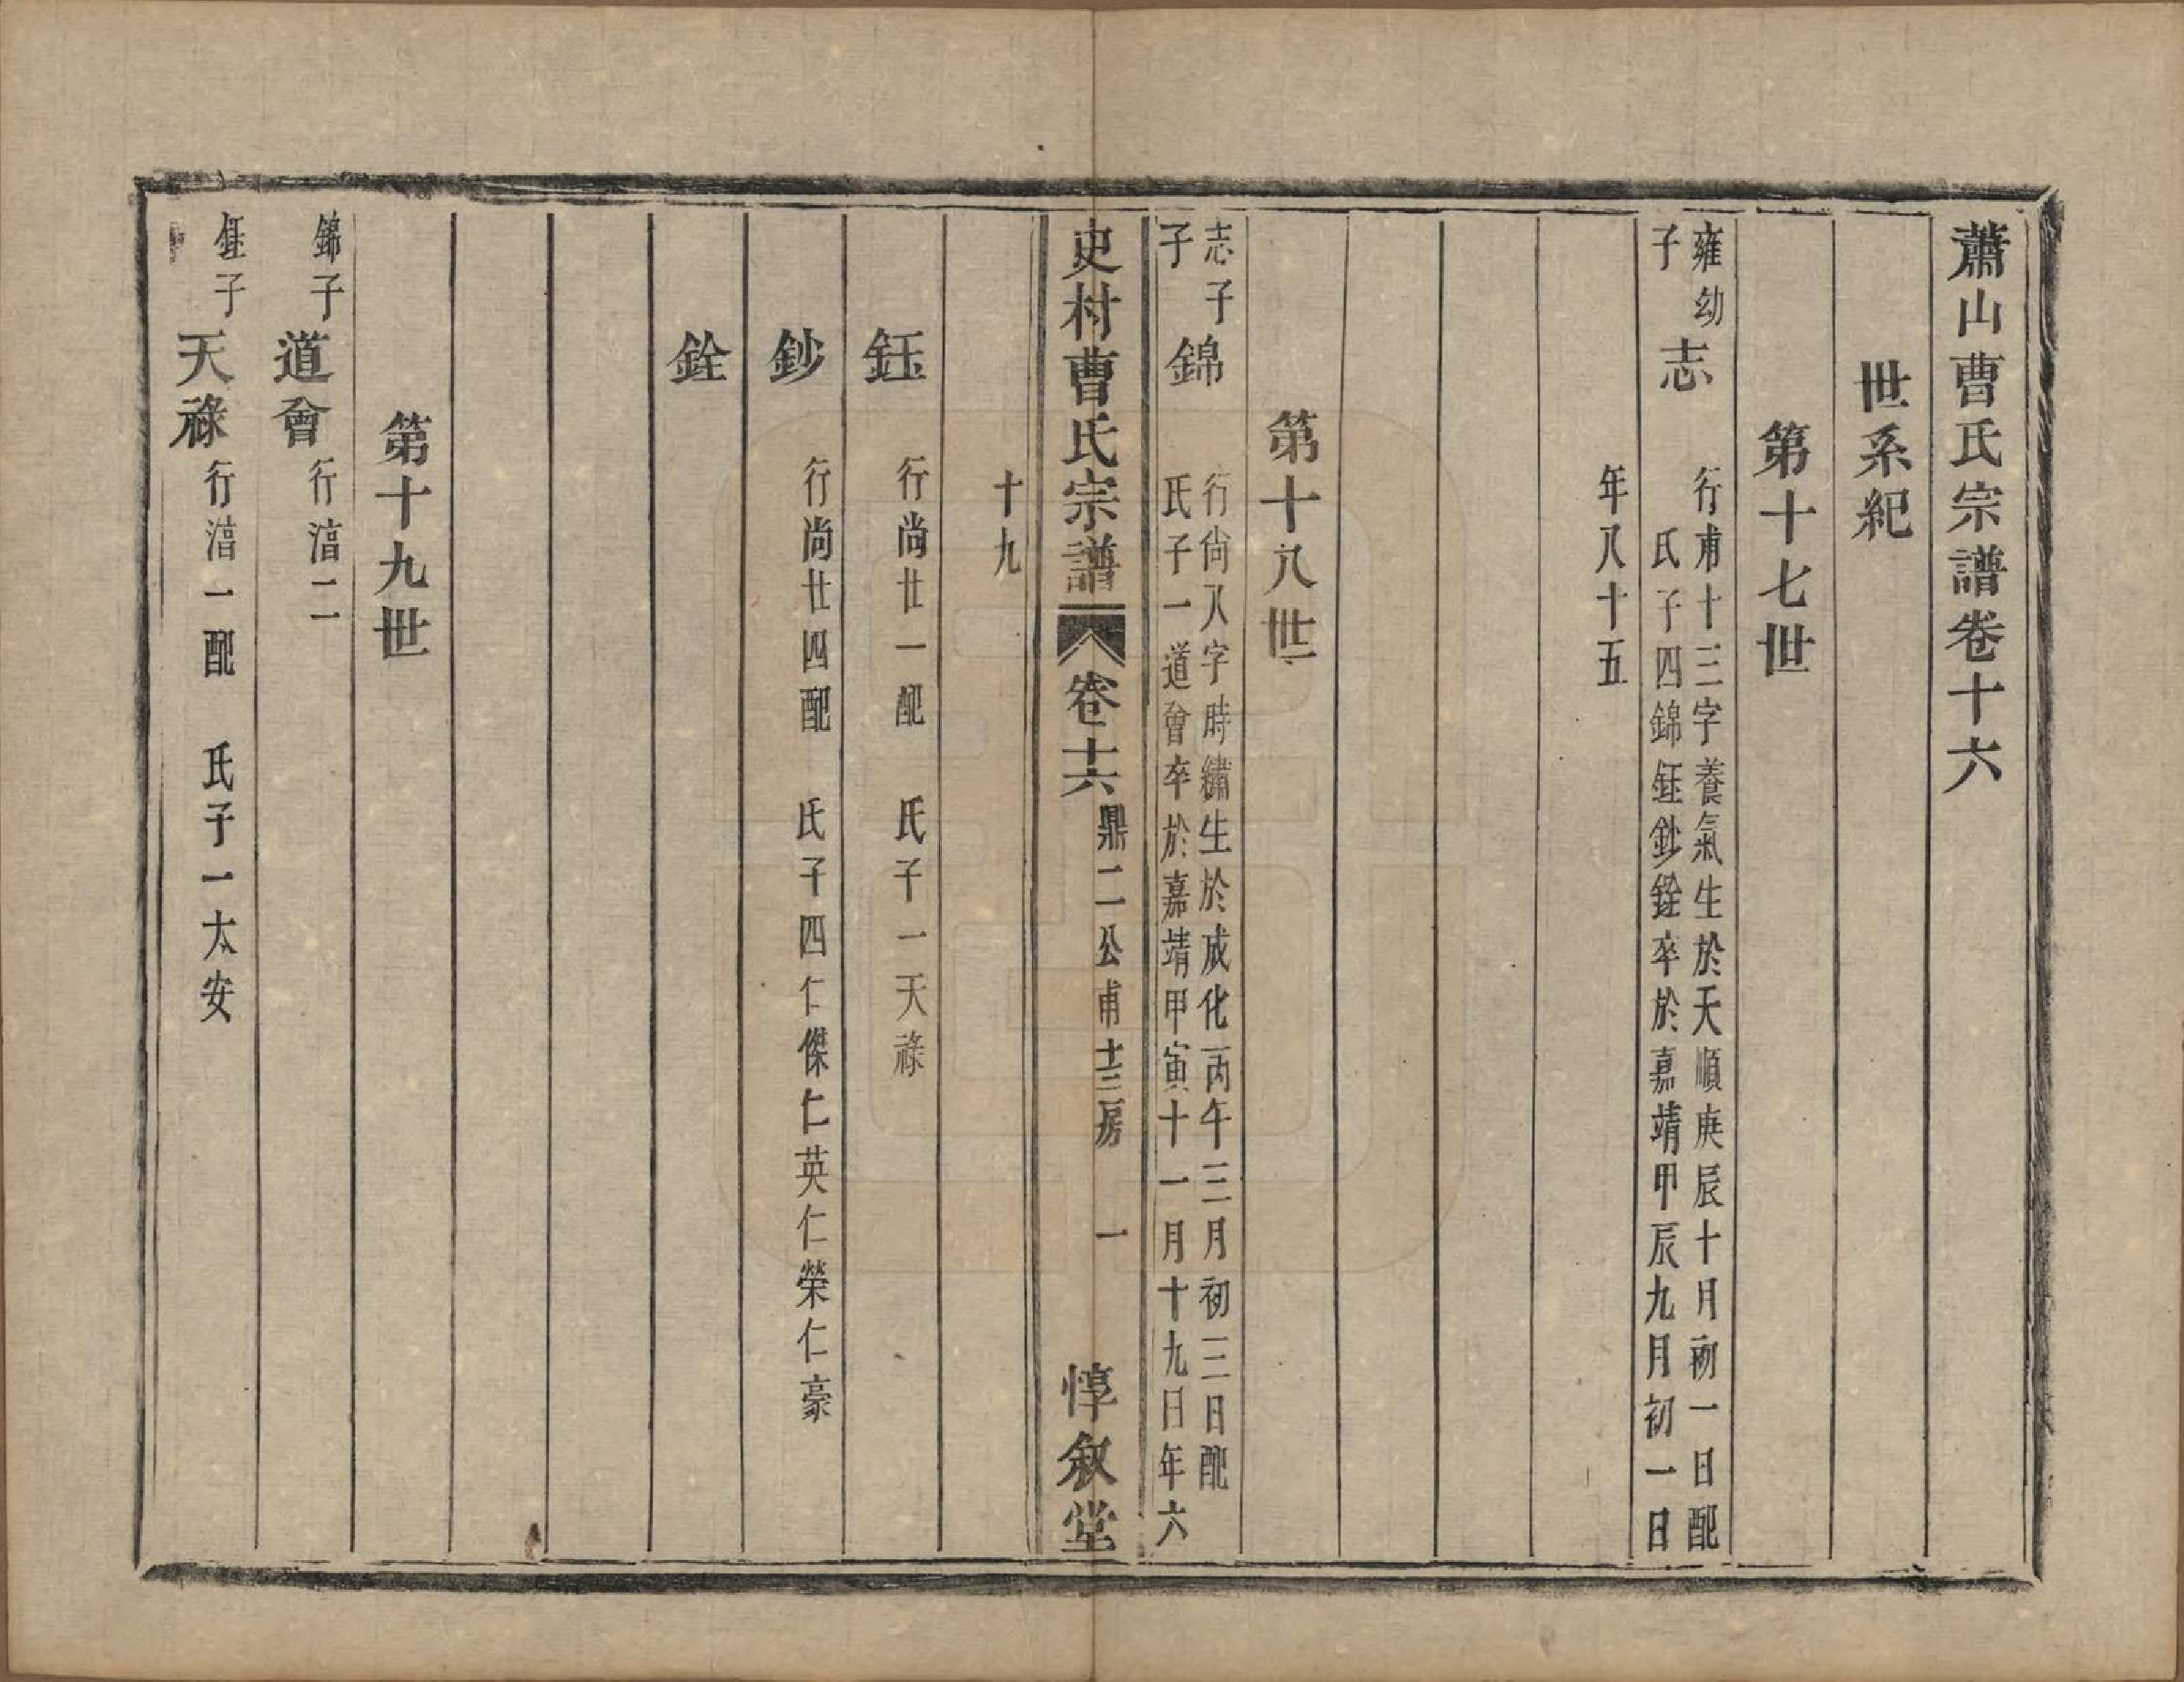 蕭山曹氏宗譜卷十六
世系紀
第十七世
雍幼
子
志
行甫十三字養氣生於天順庚辰十月初一日配
氏子四錦鈺鈔銓卒於嘉靖甲辰九月初一日
年八十五
第十八世
志子
子
錦
行尚八字時繡生於成化丙午三月初三日配
氏子一道會卒於嘉靖甲寅十一月十九日年六
史村曹氏宗譜
卷十六
鼎二公甫十三房
一
惇叙堂
十九
鈺
行尚廿一配 氏子一天祿
鈔
行尚廿四配 氏子四仁傑仁英仁榮仁豪
銓
第十九世
錦子
道會
行湻二
鈺子
天祿
行湻一配 氏子一大安